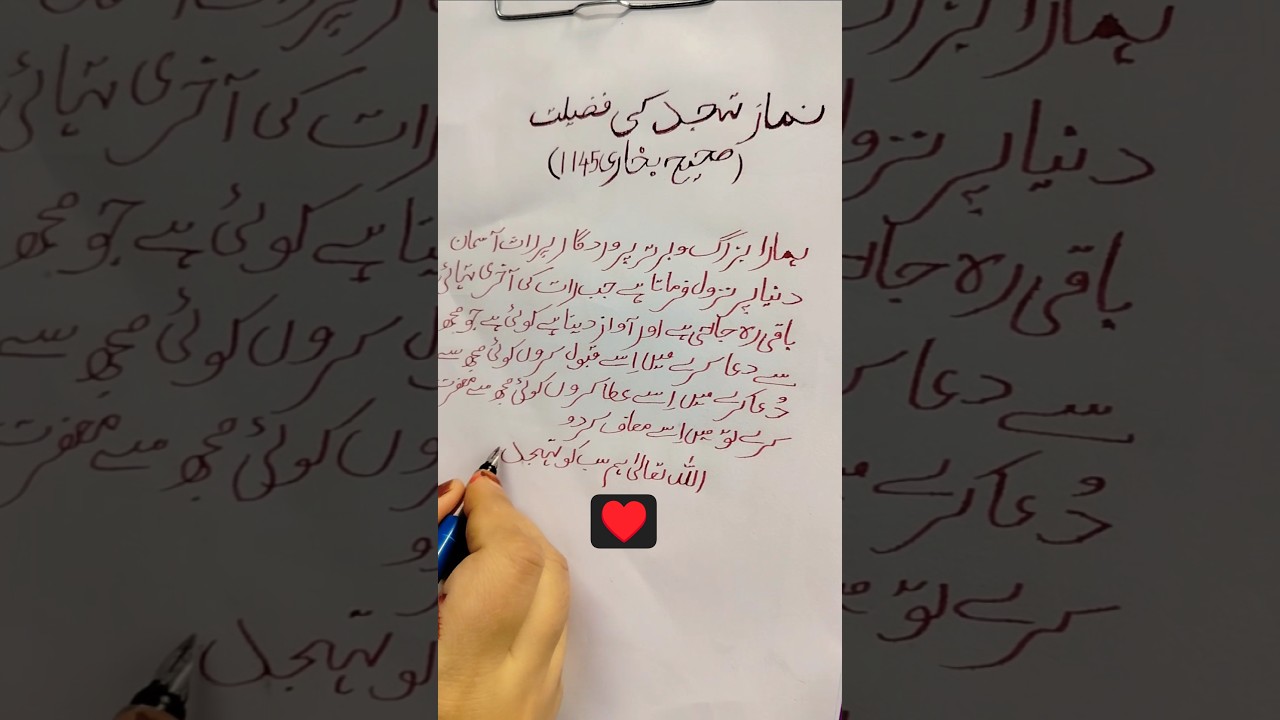 نماز تہجد کی فضیلت
(صحیح بخاری 1145)
ہمارا بزرگ و برتر پروردگار ہر رات آسمان
دنیا پر نزول فرماتا ہے جب رات کی آخری تہائی
باقی رہ جاتی ہے اور آواز دیتا ہے کوئی ہے جو مجھ
سے دعا کرے میں اسے قبول کروں کوئی مجھ سے
دُعا کرے میں اِسے عطا کروں کوئی مجھ سے مغفرت
کرے تو میں اِسے معاف کر دو
اللہ تعالیٰ ہم سب کو تہجد